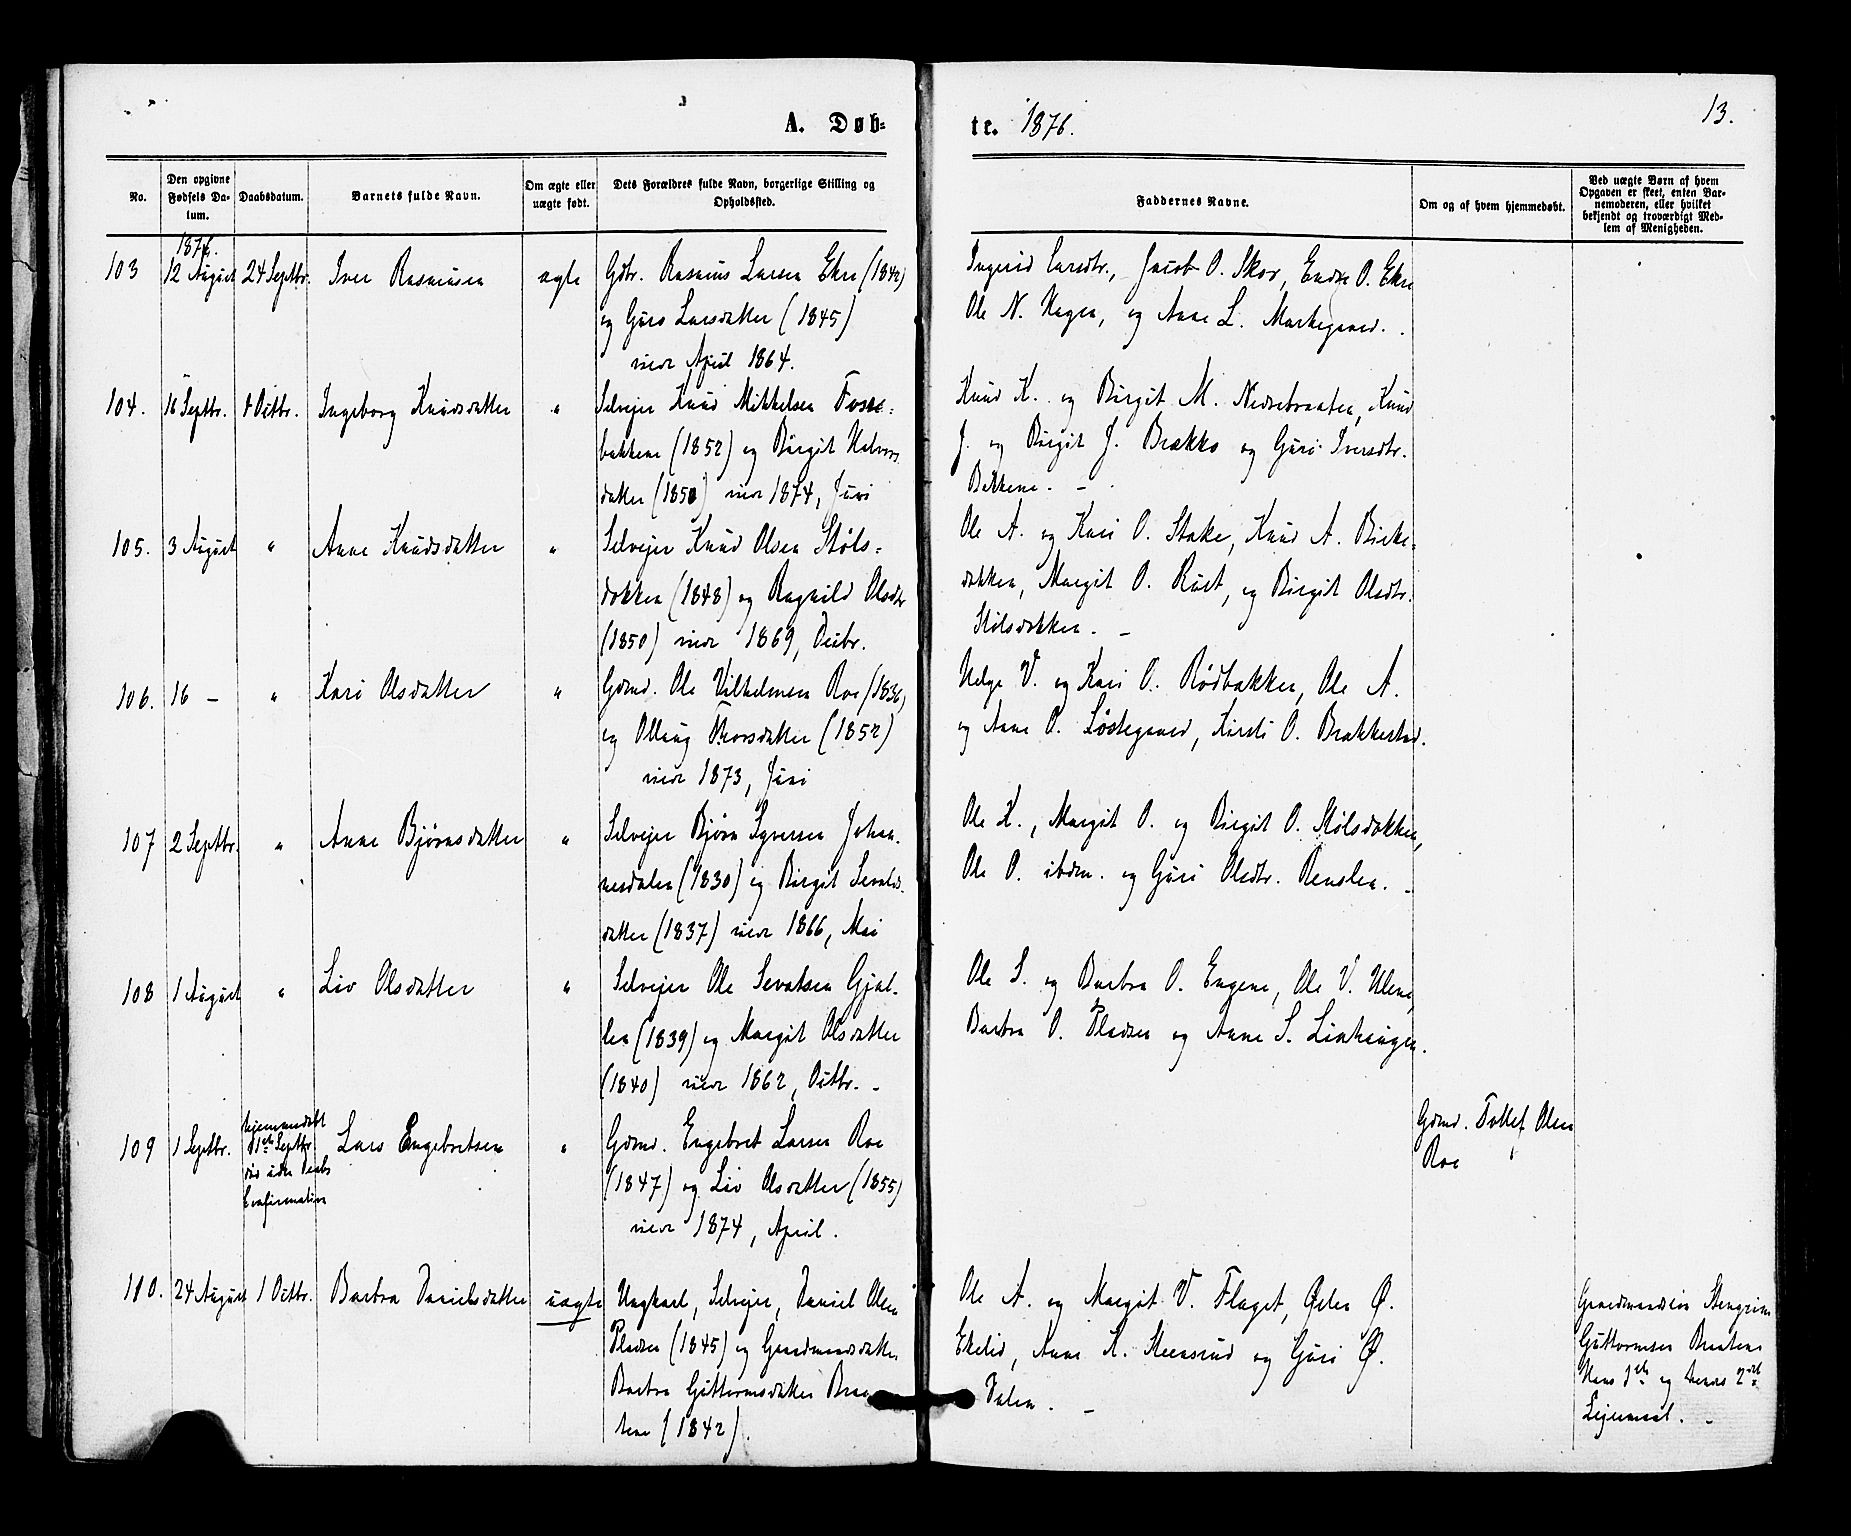 A. Døb-
te. 1876.
13.
No.
Den opgivne
Fødsels Da-
tum.
Daabsdatum.
Barnets fulde Navn.
Om ægte eller
uægte født.
Dets Forældres fulde Navn, borgerlige Stilling og
Opholdssted.
Faddernes Navne.
Om og af hvem hjemmedøbt.
Ved uægte Børn af hvem
Opgaven er skeet, enten Bar-
nemoderen, eller hvilket
bekjendt og troværdigt Med-
lem af Menigheden.
1876.
103
12 August
24 Septbr.
Iver Rasmusen
ægte
Gbr. Rasmus Larsen Ekre (1842)
og Guro Larsdatter (1845)
viede April 1864.
Ingrid Larsdtr., Jacob O. Skor, Endre O. Ekre
Ole N. Hagen, og Anne L. Markegaard.
104.
16 Septbr.
1 Octbr.
Ingeborg Knudsdatter
"
Selveier Knud Mikkelsen Fosse-
bakkene (1852) og Birgit Halvors
datter (1850) viede 1874, Juni
Knud K. og Birgit M. Nedrebraaten, Knud
J. og Birgit J. Brække og Guri Iversdtr.
Bakkene. -
105.
3 August
"
Anne Knudsdatter
"
Selveier Knud Olsen Støls-
dokken (1848) og Ragnild Olsdtr
(1850) viede 1869, Decbr.
Ole A. og Kari O. Stake, Knud A. Birke-
dokken, Margit O. Rust, og Birgit Olsdtr.
Stølsdokken. -
106.
16 -
"
Kari Olsdatter
"
Gdmd. Ole Vilhelmsen Roe (1836)
og Ollaug Thorsdatter (1852)
viede 1873, Juni
Helge V. og Kari O. Rødbakken, Ole A.
og Anne O. Løstegaard, Kirsti O. Brækkestad.
107
2 Septbr.
"
Anne Bjørnsdatter
"
Selveier Bjørn Syversen Johan-
nesdalen (1830) og Birgit Sevalds-
datter (1837) viede 1866, Mai
Ole K., Margit O. og Birgit O. Stølsdokken,
Ole O. ibdm. og Guri Olsdtr. Renslen. -
108
1 August
"
Liv Olsdatter
"
Selveier Ole Sevatsen Gjel-
len (1839) og Margit Olsdatter
(1840) viede 1862, Octbr. -
Ole S. og Barbra O. Engene, Ole V. Ulene,
Barbra O. Pladsen og Anne S. Linhaugen.
109
1 Septbr.
hjemmedøbt
d 1ste Septbr
død uden Daabs
Confirmation
Lars Engebretsen
"
Gdmd. Engebret Larsen Roe
(1847) og Liv Olsdatter (1855)
viede 1874, April.
Gdmd. Tollef Olsen
Roe
110.
24 August
1 Octbr.
Barbra Danielsdatter
uægte
Ungkarl, Selveier, Daniel Olsen
Pladsen (1845) og Gaardmandsdatter
Barbra Guttormsdatter Braa
tene (1842).
Ole A. og Margit V. Flaget, Østen Ø.
Ekelid, Anne K. Steensrud og Guri Ø.
Dalen. -
Gaardmanden Stengrim
Guttormsen Braatene
Hans 1ste og hendes 2det
Leiermaal. -